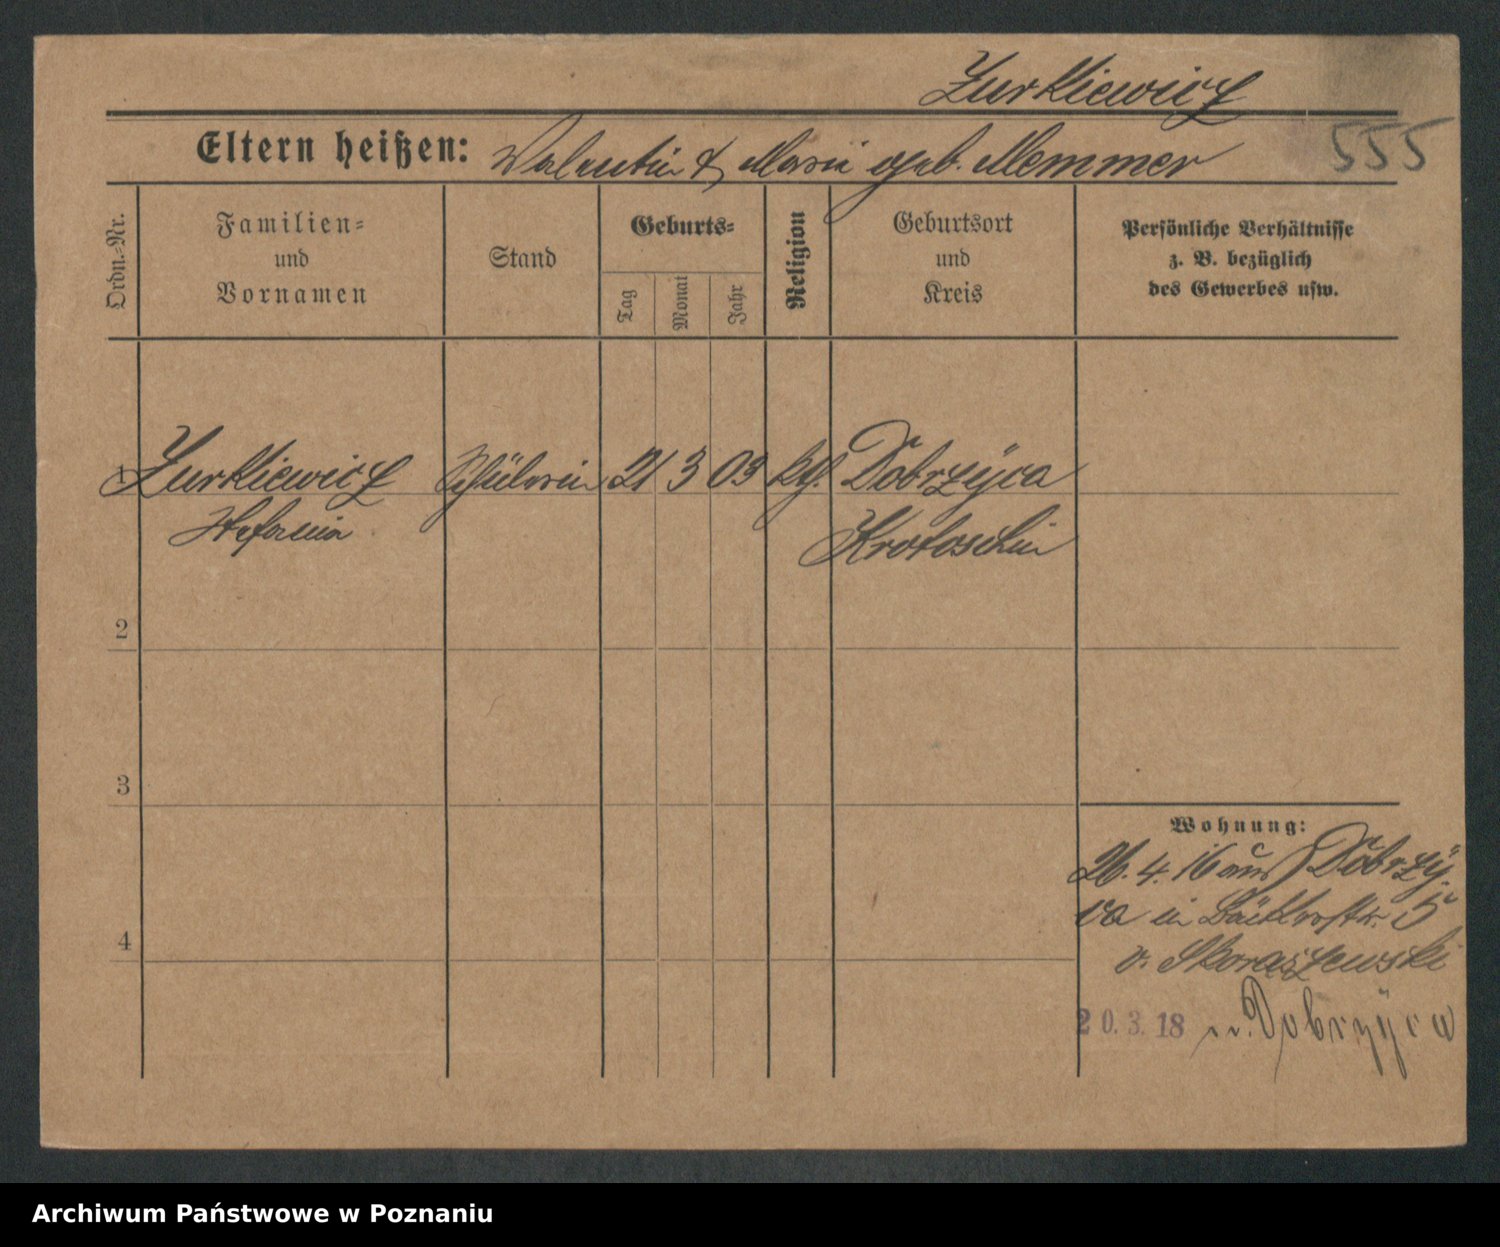 Zurkiewicz
555
Eltern heißen: Valentin & Maria geb. Memmer
Ordn.=Nr.
Familien=
und
Vornamen
Stand
Geburts=
Tag
Monat
Jahr
Religion
Geburtsort
und
Kreis
Persönliche Verhältnisse
z. B. bezüglich
des Gewerbes usw.
1 Zurkiewicz Schülerin 21 3 03 kth. Dobrzyca
Stefania Krotoschin
2
3
4
Wohnung:
26. 4. 16 aus Dobrzy-
ca in 5
v. Skoraszewski
20.3.18 n. Dobrzyca
Archiwum Państwowe w Poznaniu